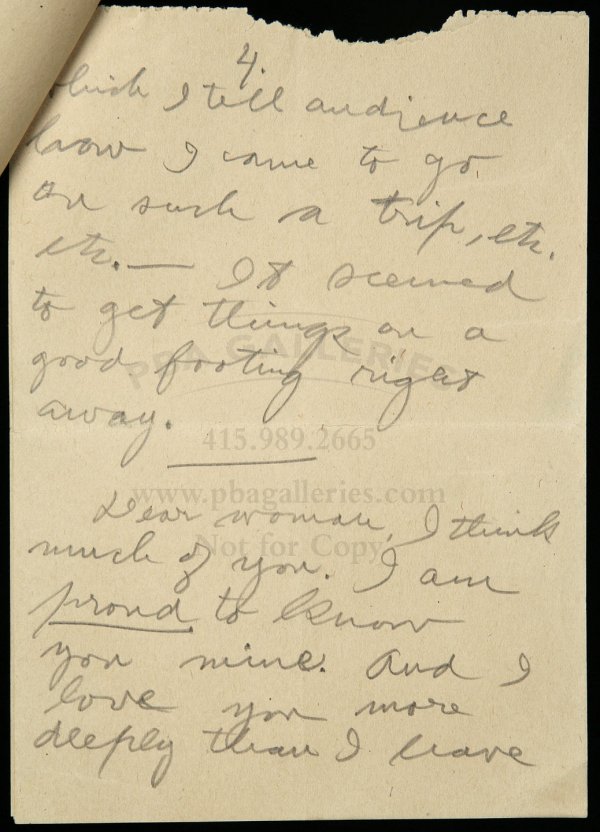 4.
which I tell audience
how I came to go
on such a trip, etc.
etc. — It seemed
to get things on a
good footing right
away.
PBA GALLERIES
415.989.2665
www.pbagalleries.com
Dear woman, I think
Not for Copy
much of you. I am
proud to know
you mine. And I
love you more
deeply than I have